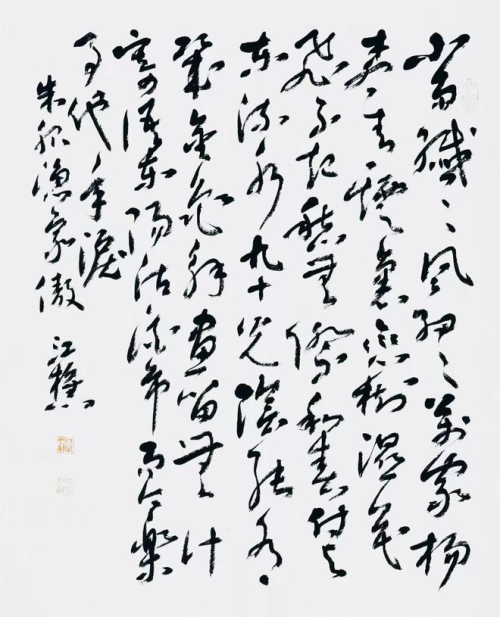 小雨纖々風細々萬家楊
柳青煙裏戀樹濕花
飛不起愁無際和春付與
東流水九十光陰能有
幾金龜解盡留無計
寄語東陽沽酒市而今樂
事他年淚
朱服漁家傲 江